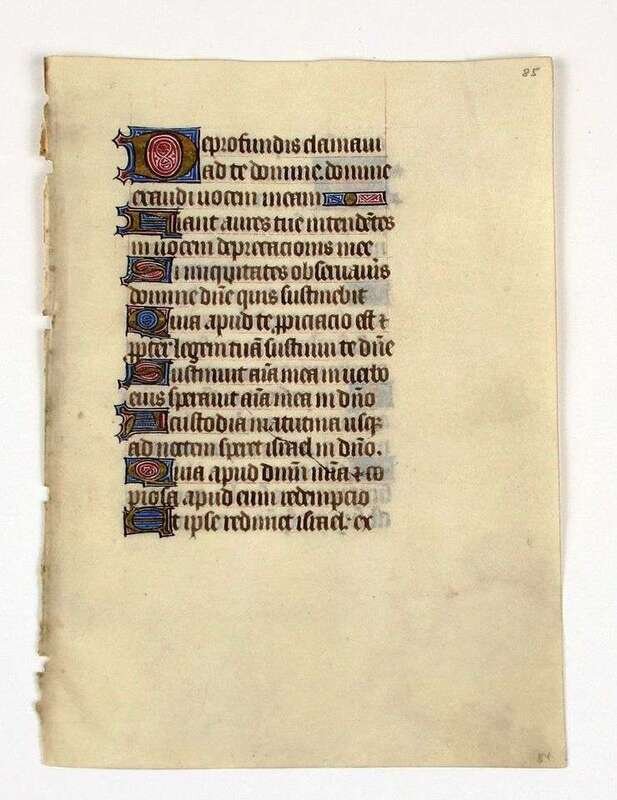 85
Deprofundis clamaui
ad te domine. domine
exaudi uocem meam
Fiant aures tue intendētes
in uocem deprecacionis mee
Si iniquitates obseruaūis
domine dñe quis sustinebit
Quia apud te ꝓpiciacio est ⁊
ꝓpter legem tuā sustinui te dñe
Sustinuit aīa mea in uerbo
eius sperauit aīa mea in dño
A custodia matutina usqꝫ
ad noctem speret israel in dño.
Quia apud dnm̄ mīa ⁊ co
piosa apud eum redempcio
Et ipse redimet israel. ex